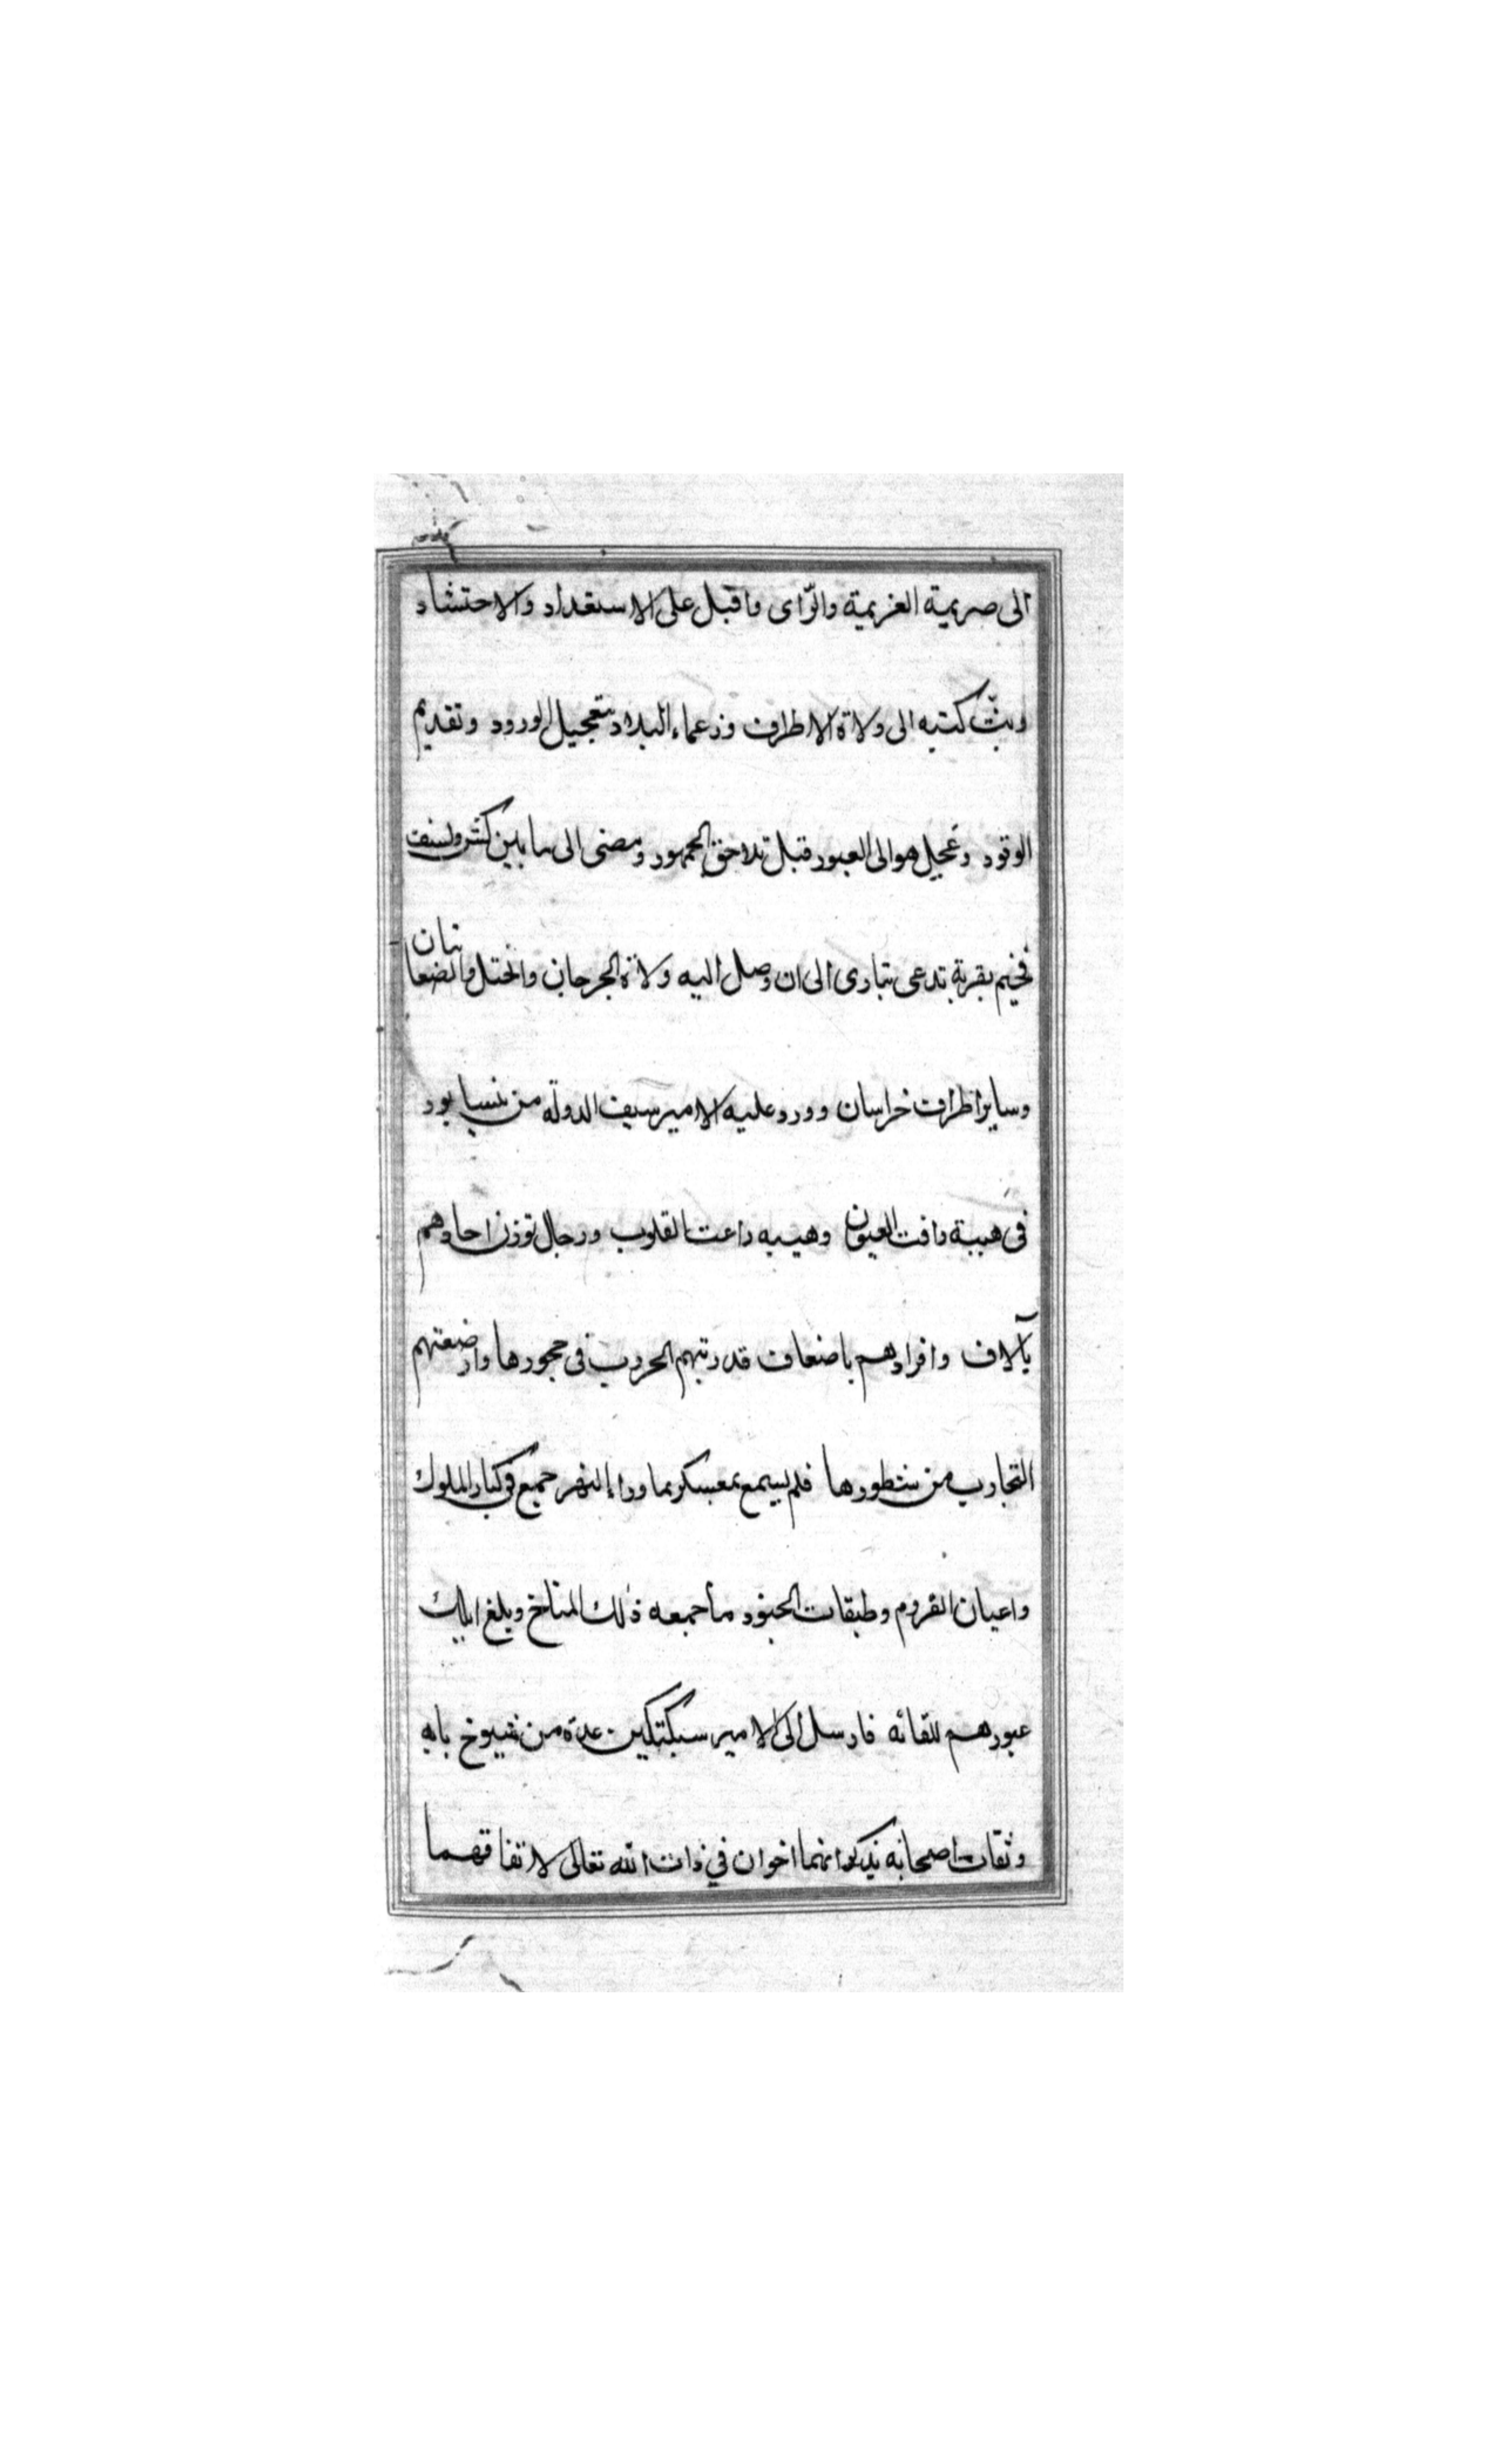 الى صريمة العزيمة والرّاى واقبل على الاستعداد والاحتشاد
وبثّ كتبه الى ولاة الاطراف وزعماء البلاد بتعجيل الورود وتقديم
الوقود وعجيل هو الى العبور قبل تلاحق الجمهور ومضى الى ما بين كش ونسف
فخيم بقرية تدعى تبارى الى ان وصل اليه ولاة الجرجان والختل والصغانيان
وساير اطراف خراسان وورد عليه الامير سيف الدولة من نيسابور
فى هيبة راقت العيون وهيبه راعت القلوب ورجال توزن احادهم
بآلاف وافرادهم باضعاف قد ربتهم الحروب فى حجورها وارضعتهم
التجارب من شطورها فلم يسمع بمعسكر بما وراء النهر جمع فى كبار الملوك
واعيان القروم وطبقات الجنود ما جمعه ذلك المناخ وبلغ ايلك
عبورهم للقائه فارسل الى الامير سبكتكين عدة من شيوخ بابه
وثقات اصحابه يذكر انهما اخوان في ذات الله تعالى لاتفاقهما